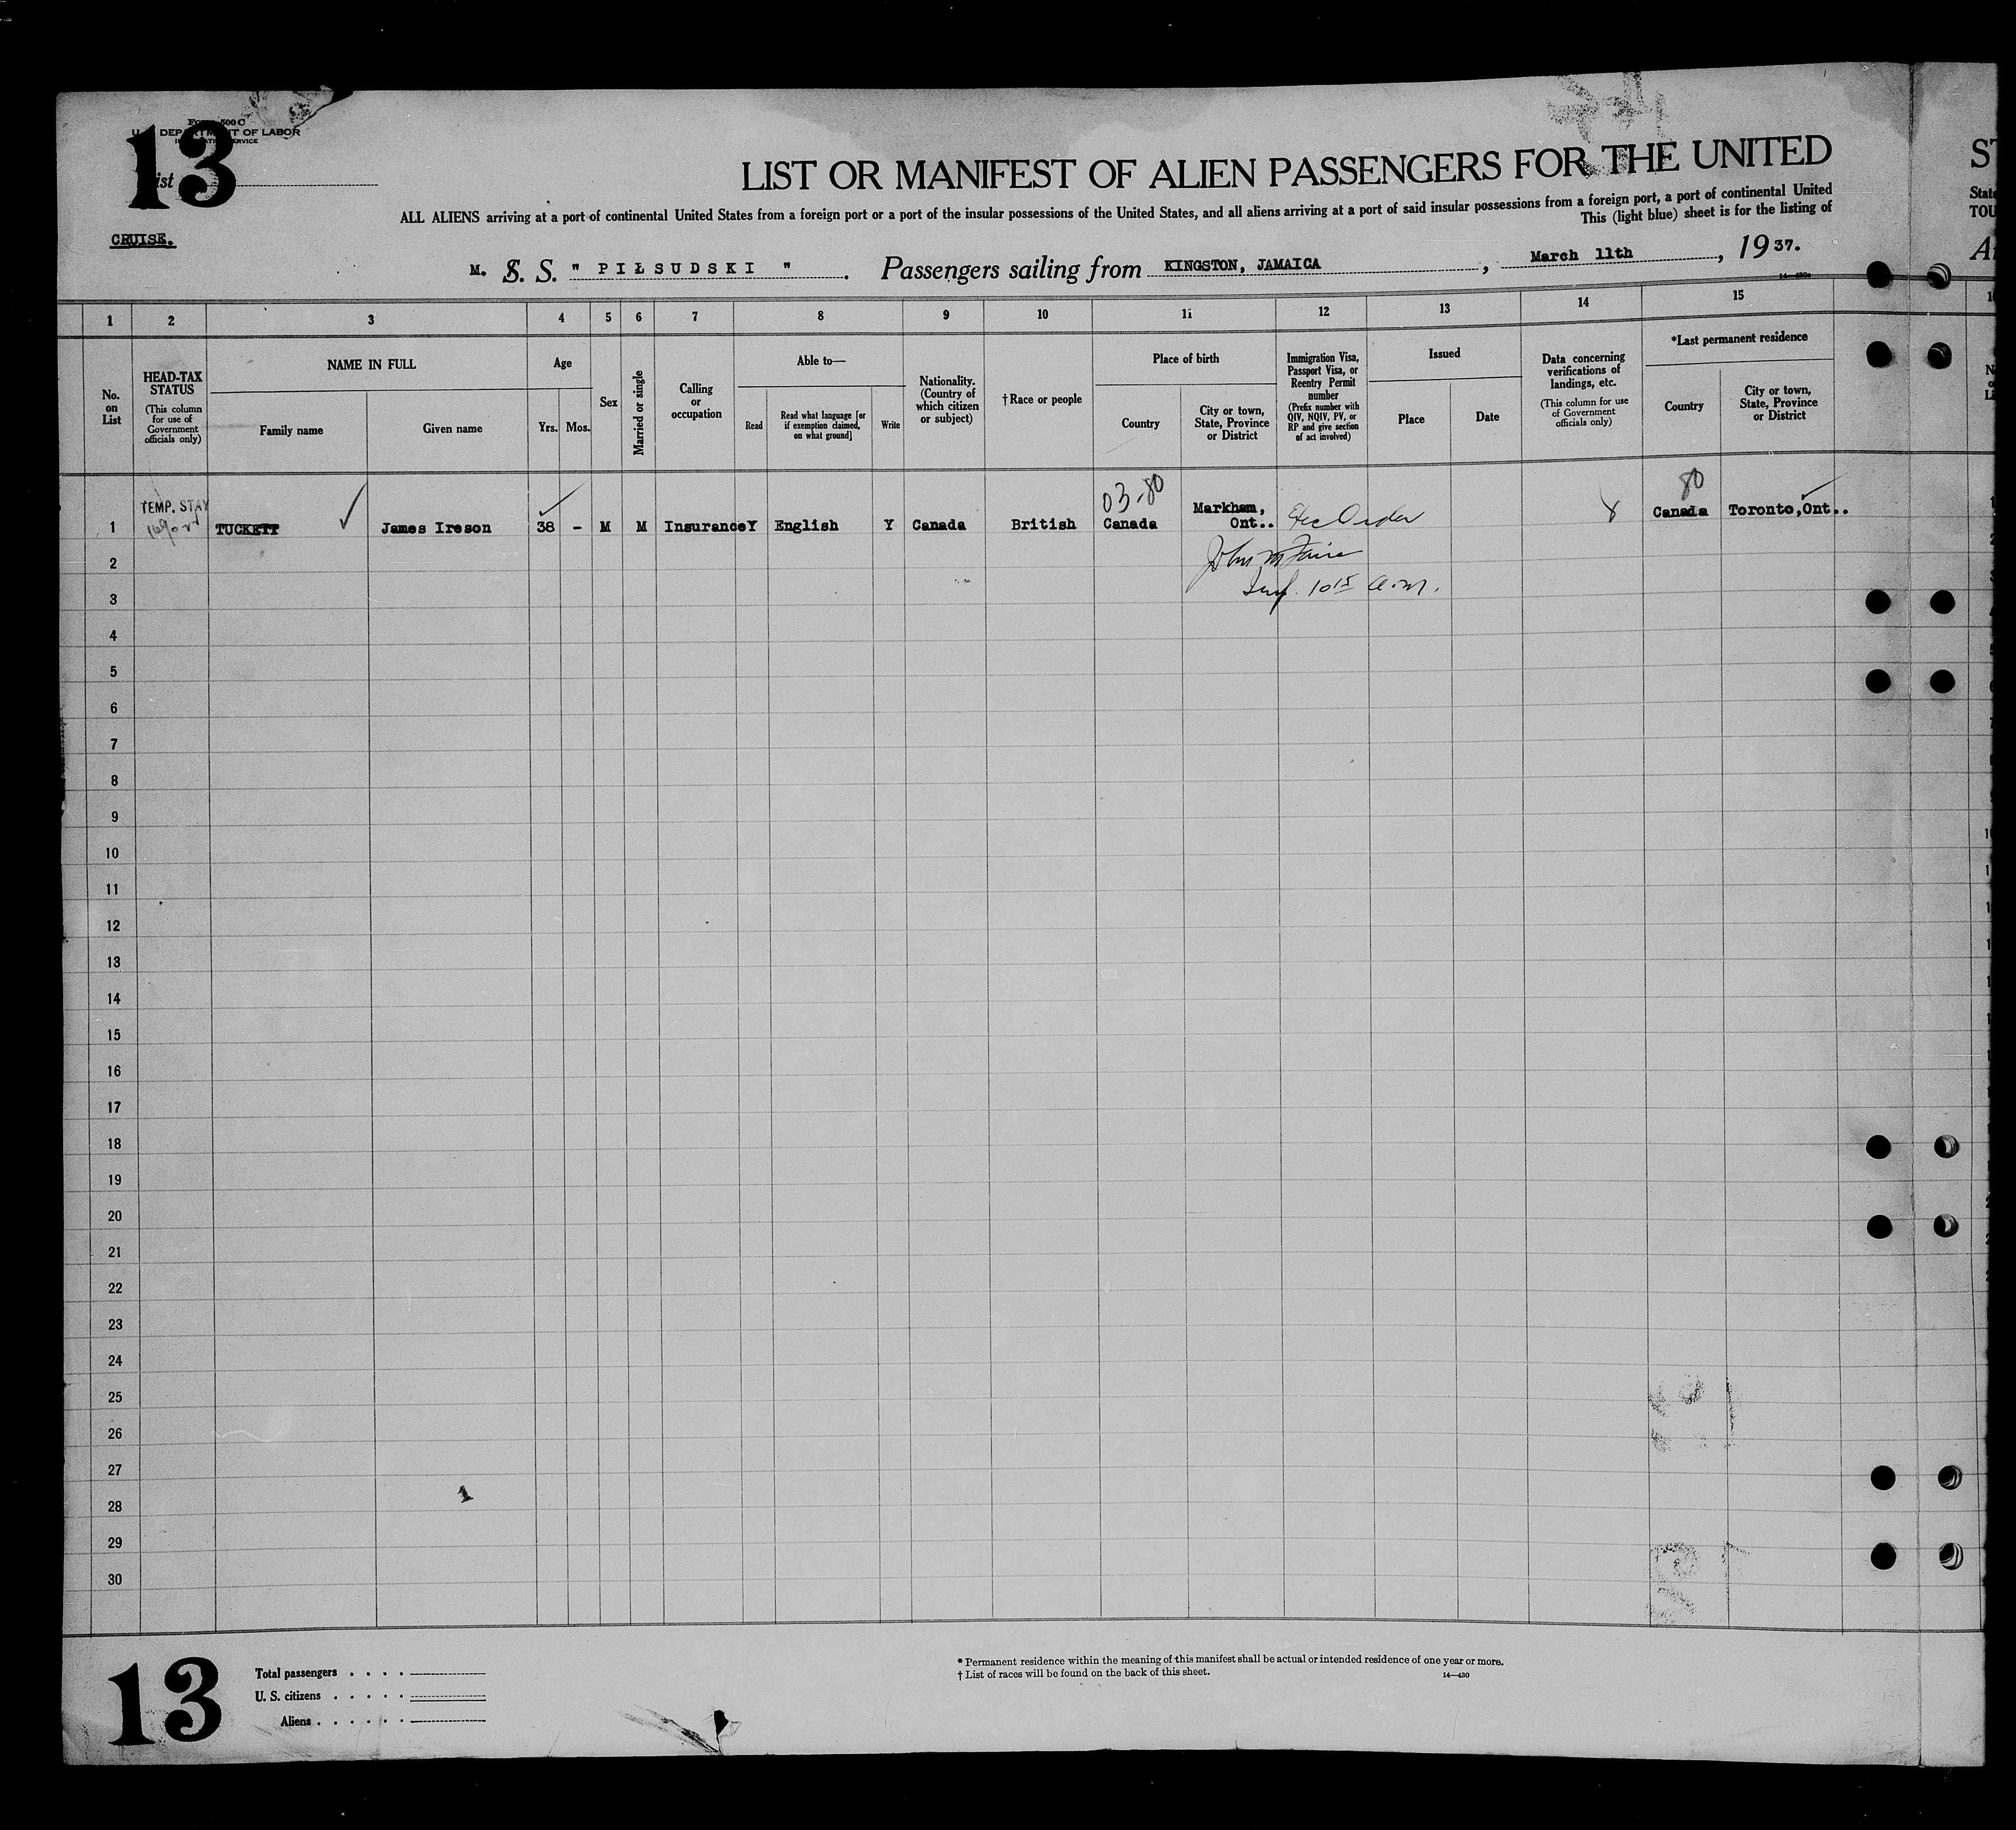 13
Form 500 C
U. S. DEPARTMENT OF LABOR
List
CRUISE.
LIST OR MANIFEST OF ALIEN PASSENGERS FOR THE UNITED
ST
ALL ALIENS arriving at a port of continental United States from a foreign port or a port of the insular possessions of the United States, and all aliens arriving at a port of said insular possessions from a foreign port, a port of continental United
State
This (light blue) sheet is for the listing of
TOU
M. S. S. " PIŁSUDSKI ". Passengers sailing from KINGSTON, JAMAICA, March 11th, 1937.
14—430a
1 2 3 4 5 6 7 8 9 10 11 12 13 14 15
No. on List
HEAD-TAX STATUS
(This column for use of Government officials only)
NAME IN FULL
Family name
Given name
Age
Yrs. Mos.
Sex
Married or single
Calling or occupation
Able to—
Read
Read what language [or if exemption claimed, on what ground]
Write
Nationality. (Country of which citizen or subject)
†Race or people
Place of birth
Country
City or town, State, Province or District
Immigration Visa, Passport Visa, or Reentry Permit number
(Prefix number with QIV, NQIV, PV, or RP and give section of act involved)
Issued
Place
Date
Data concerning verifications of landings, etc.
(This column for use of Government officials only)
*Last permanent residence
Country
City or town, State, Province or District
03-80
80
1 TEMP. STAY TUCKETT James Ireson 38 - M M Insurance Y English Y Canada British Canada Markham, Ont.. Exec Order Canada Toronto, Ont..
2
3 10 15 a.m.
4
5
6
7
8
9
10
11
12
13
14
15
16
17
18
19
20
21
22
23
24
25
26
27
28
29
30
13
Total passengers . . . .
U. S. citizens . . . . .
Aliens . . . . . .
* Permanent residence within the meaning of this manifest shall be actual or intended residence of one year or more.
† List of races will be found on the back of this sheet.
14—430